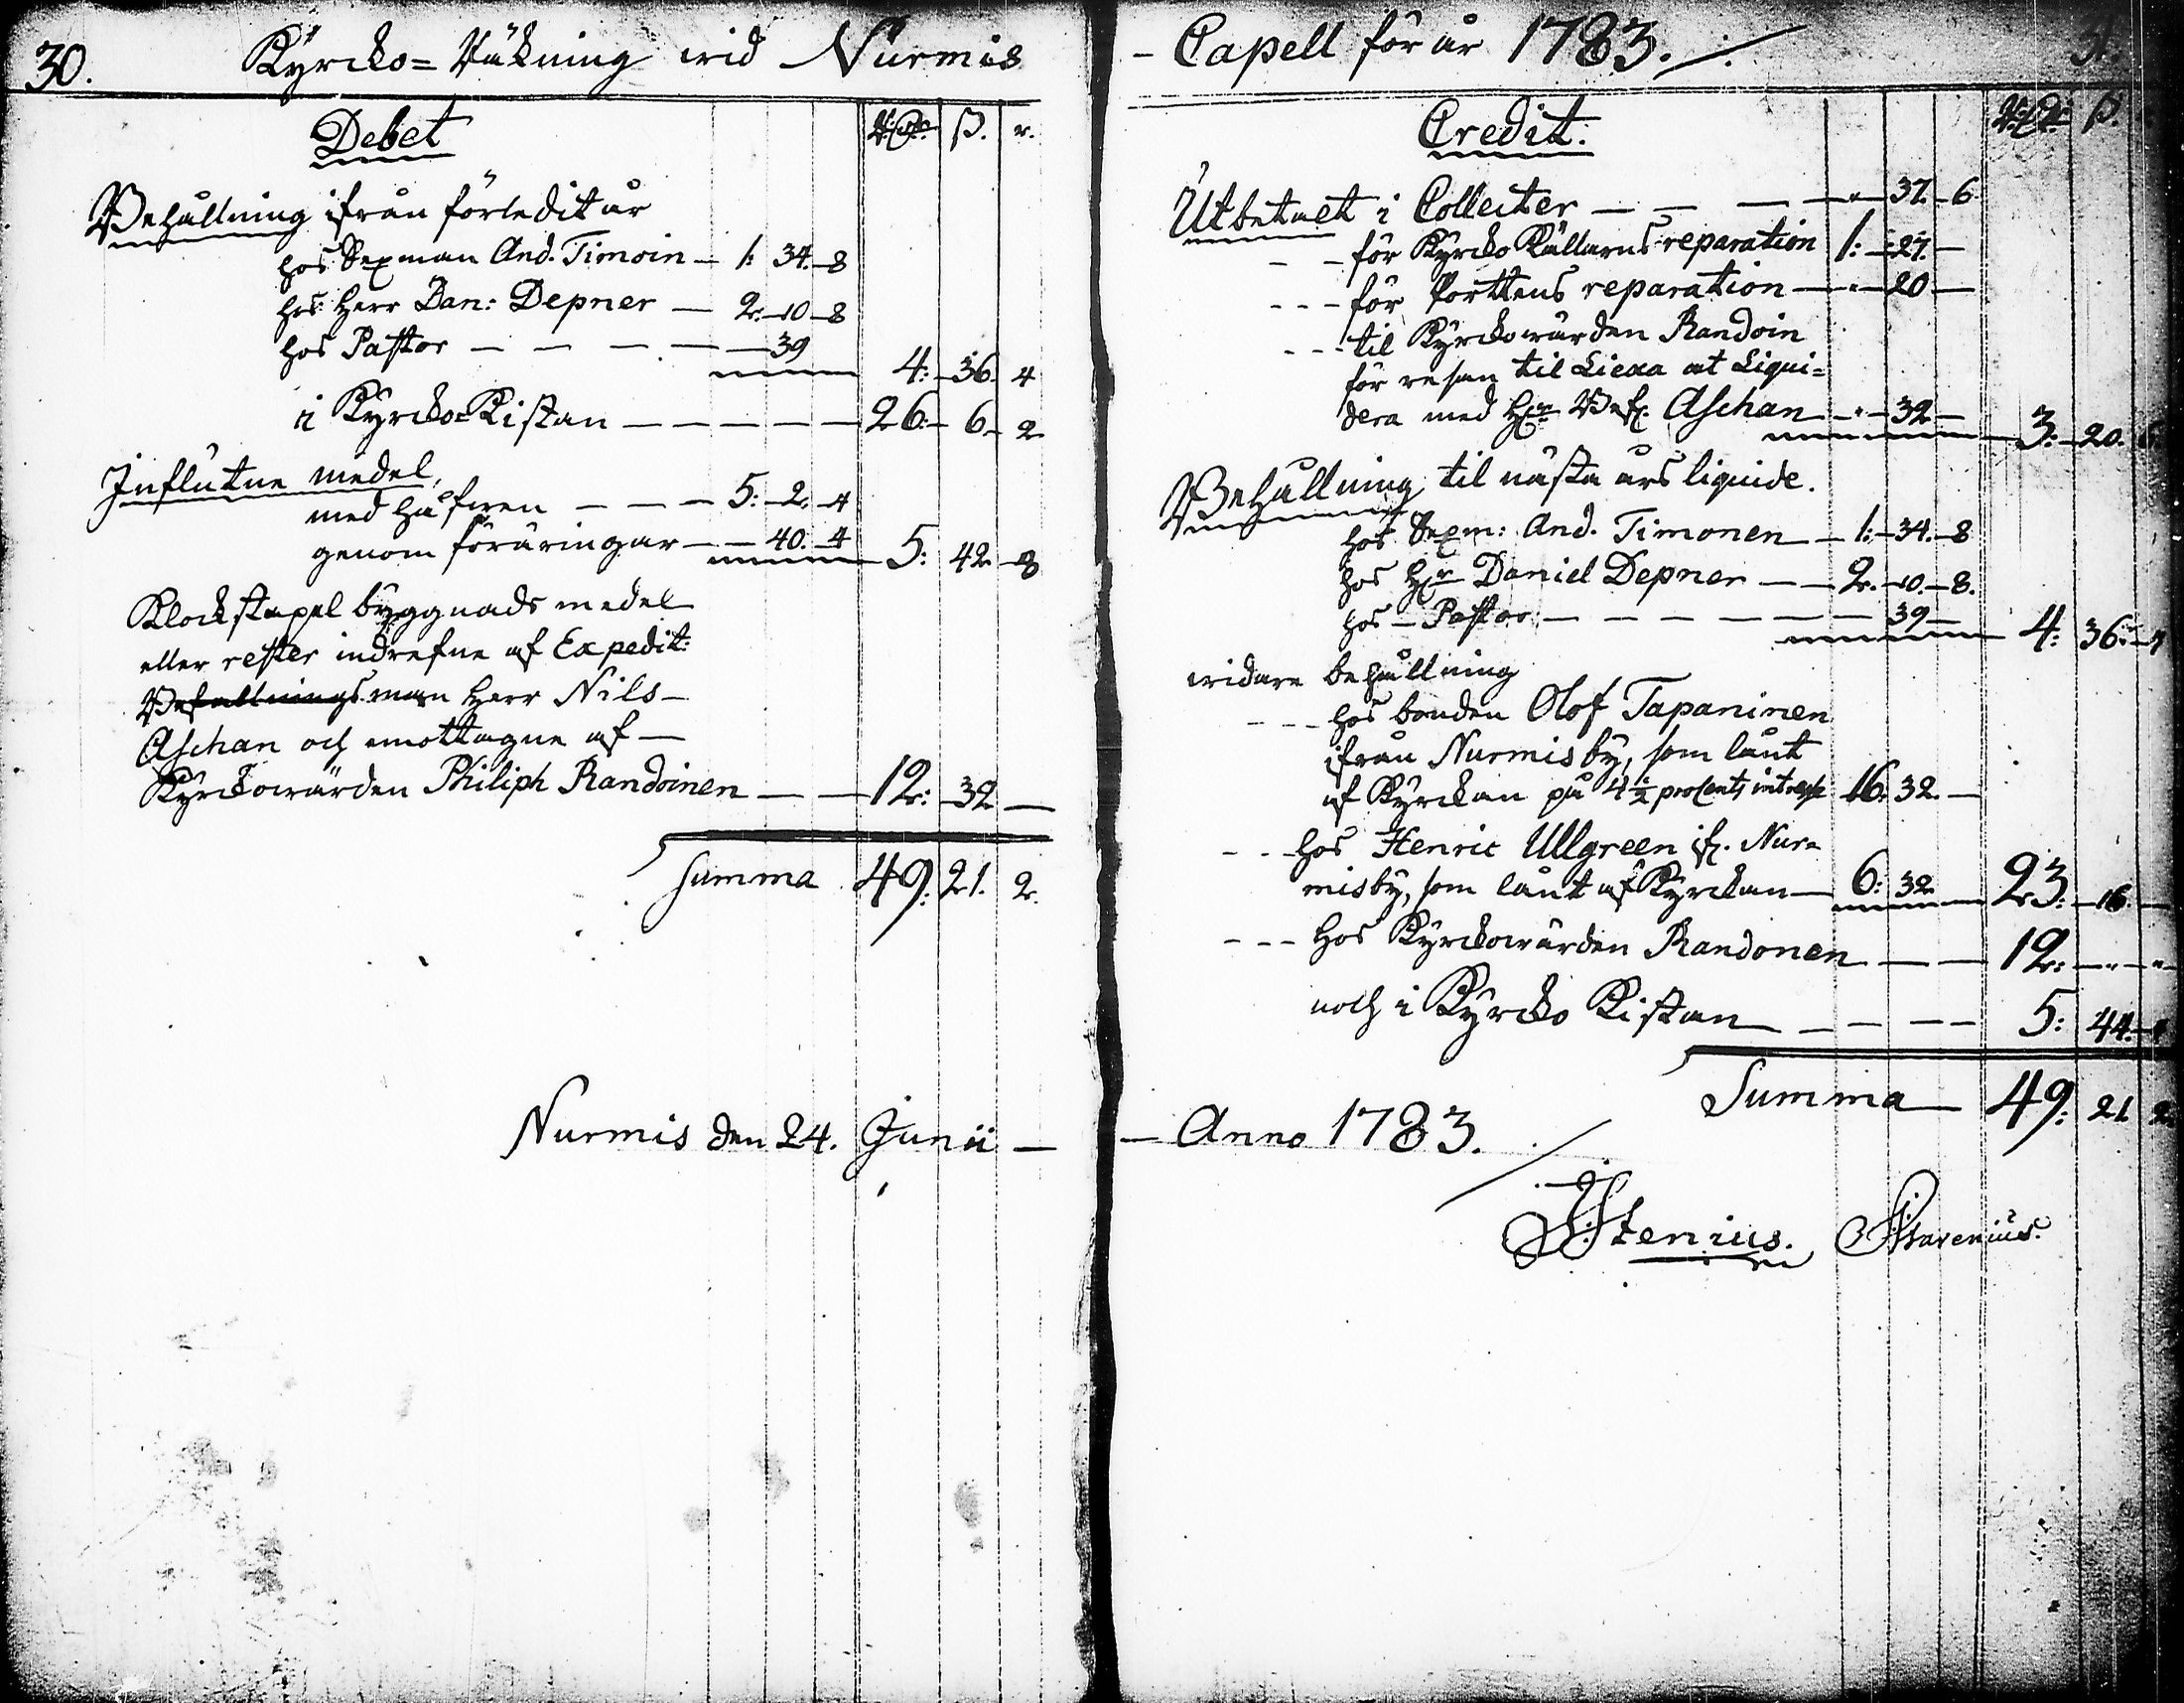 30. Kyrcko=Räkning wid Nurmis
Debet
R:dr ß. r.
Behållning ifrån förledit år
hos Sexman And. Timoin — 1: 34. 8
hos Herr Dan: Depner — 2. 10 8
hos Pastor — — — — 39
4: 36. 4
i Kyrcko=Kistan — — — — — 26: 6. 2
Influtne medel,
med håfwen — — — 5: 2. 4
genom föräringar — — 40. 4 5: 42 8
Klockstapel byggnads medel
eller rester indrefne af Expedit:
Befallningsman Herr Nils
Aschan och emottagne af —
Kyrckowärden Philiph Randoinen — — 12: 32 —
Summa 49: 21. 2.
Nurmis den 24. Junii —
— Capell för år 1783. 31.
Credit.
R:dr ß.
Utbetalt i Collecter — — — — " 37. 6.
- - för Kyrcko Källarns reparation 1: 27. —
- - - för Porttens reparation — " 20 —
- - - til Kyrckowärden Randoin
för resan til Liexa at Liqui=
dera med H:r Bef. Aschan — " 32 — 3: 20. 6
Behållning til nästa års liquide.
hos Sexm: And. Timonen — 1: 34. 8
hos H:r Daniel Depner — — 2. 10. 8.
hos — Pastor — — — — — — 39 — 4: 36. 4
widare behållning
- - - hos bonden Olof Tapaninen
ifrån Nurmis by, som lånt
af Kyrckan på 4 1/2 proCents intresse 16: 32. —
- - hos Henric Ullgreen if. Nur=
misby, som lånt af Kyrckan — 6: 32 23: 16. —
- - - Hos Kyrckowärden Randonen — — 12: — " — "
noch i Kyrcko Kistan — — — — 5: 44. 4
Summa — 49: 21 2
— Anno 1783.
Stenius.